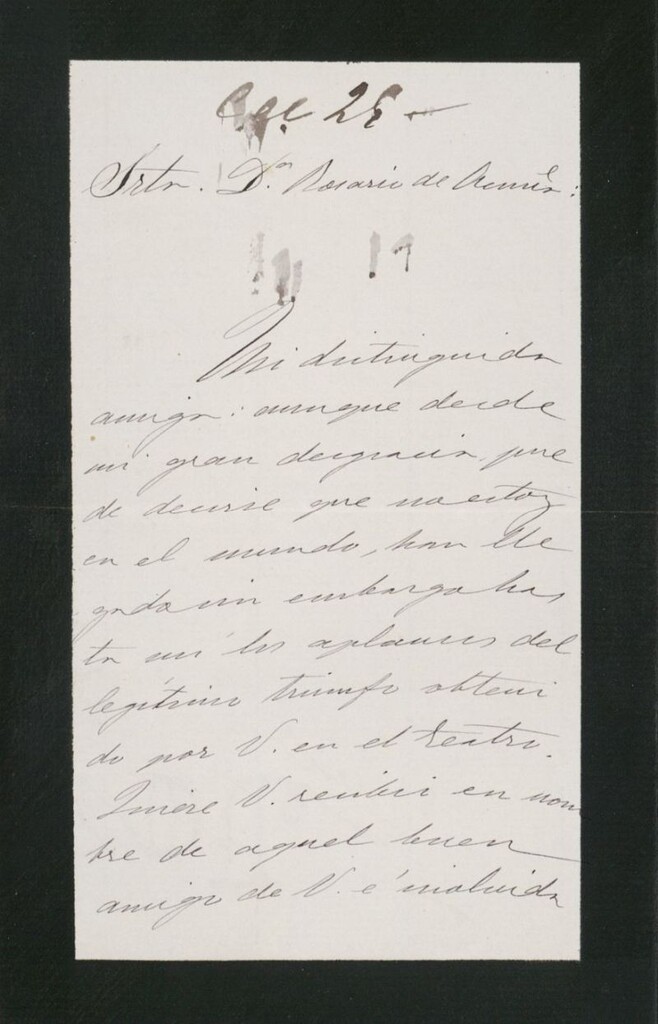 28
Srta. Dª Rosario de Acuña:
Mi distinguida
amiga: aunque desde
mi gran desgracia, pue
de decirse que no estoy
en el mundo, han lle
gado sin embargo has
ta mí los aplausos del
legítimo triunfo obteni
do por V. en el teatro.
Quiere V. recibir en nom
bre de aquel buen
amigo de V. é inolvida